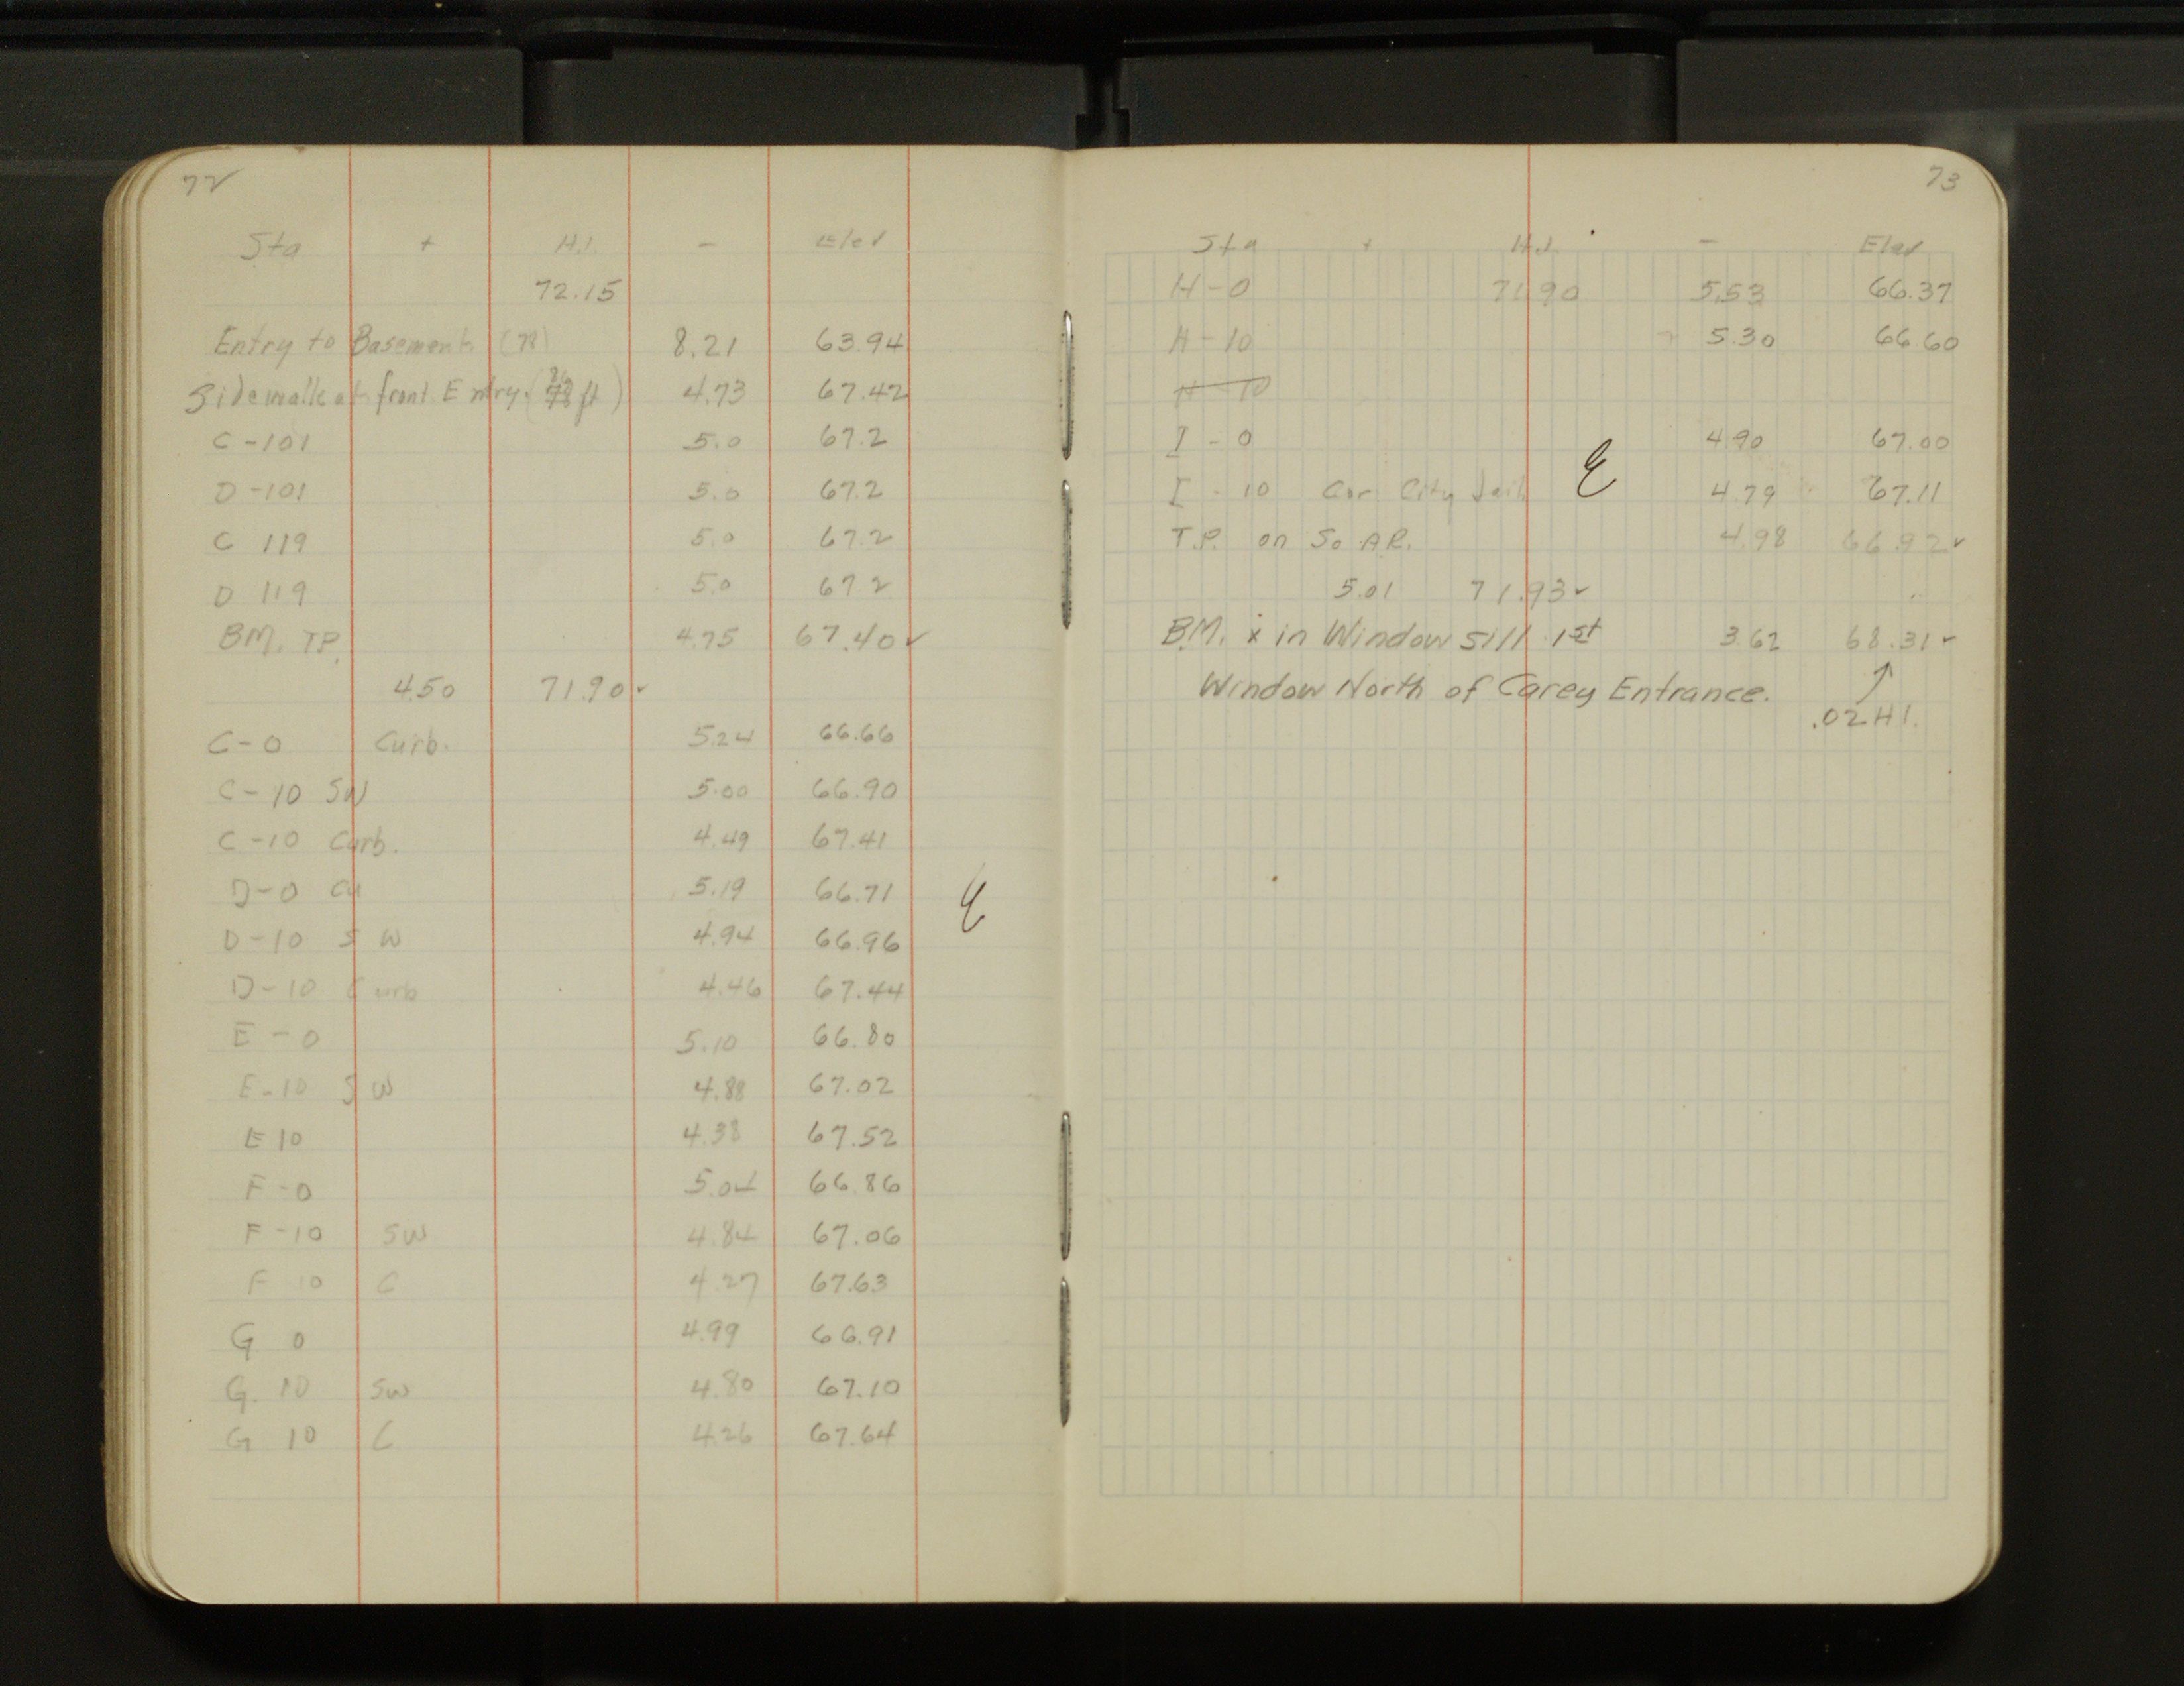 72
Sta + H.I. - Elev
72.15
Entry to Basement (N) 8.21 63.94
Sidewalk at front Entry. ( ft) 4.73 67.42
C-101 5.0 67.2
D-101 5.0 67.2
C 119 5.0 67.2
D 119 5.0 67.2
BM. T.P. 4.75 67.40 ✓
4.50 71.90 ✓
C-0 Curb. 5.24 66.66
C-10 SW 5.00 66.90
C-10 Curb. 4.49 67.41
D-0 Cu 5.19 66.71
D-10 SW 4.94 66.96
D-10 Curb 4.46 67.44
E-0 5.10 66.80
E-10 SW 4.88 67.02
E 10 4.38 67.52
F-0 5.04 66.86
F-10 SW 4.84 67.06
F 10 C 4.27 67.63
G 0 4.99 66.91
G. 10 SW 4.80 67.10
G 10 C 4.26 67.64
73
Sta + H.I. - Elev
H-0 71.90 5.53 66.37
H-10 5.30 66.60
H 10
I-0 4.90 67.00
I-10 Cor City Jail 4.79 67.11
T.P. on So. A.R. 4.98 66.92 ✓
5.01 71.93 ✓
B.M. x in Window Sill 1st 3.62 68.31 ✓
Window North of Carey Entrance. ↑
.02 HI.